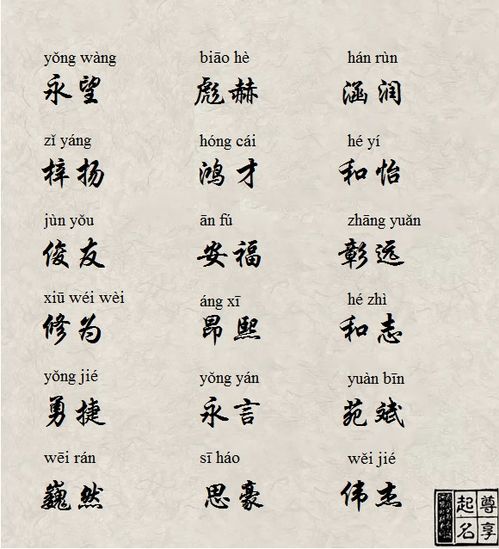 yǒng wàng biāo hè hán rùn
永望 彪赫 涵润
zǐ yáng hóng cái hé yí
梓扬 鸿才 和怡
jùn yǒu ān fú zhāng yuǎn
俊友 安福 彰远
xiū wéi wèi áng xī hé zhì
修为 昂熙 和志
yǒng jié yǒng yán yuàn bīn
勇捷 永言 苑斌
wēi rán sī háo wěi jié
巍然 思豪 伟杰
尊享
起名